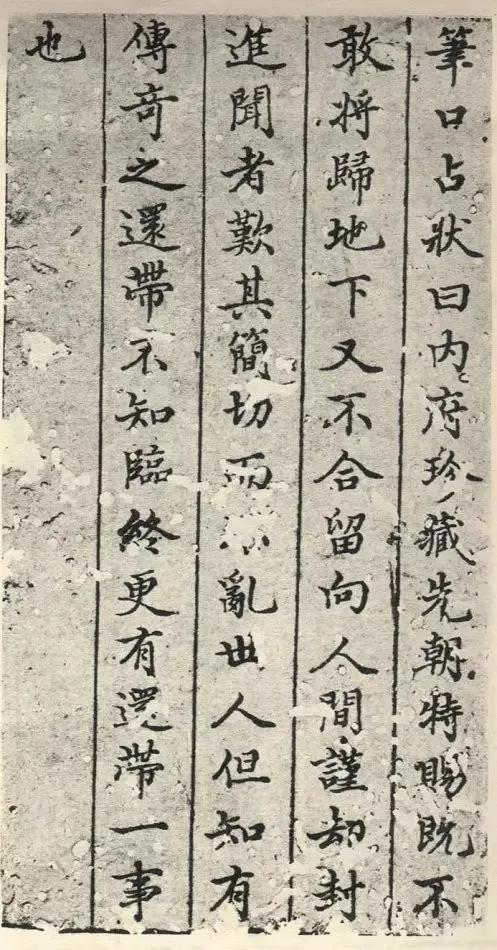 筆口占狀曰内府珍藏先朝特賜既不
敢将歸地下又不合留向人間謹却封
進聞者歎其簡切而亂世人但知有
傳竒之還帶不知臨終更有還帶一事
也